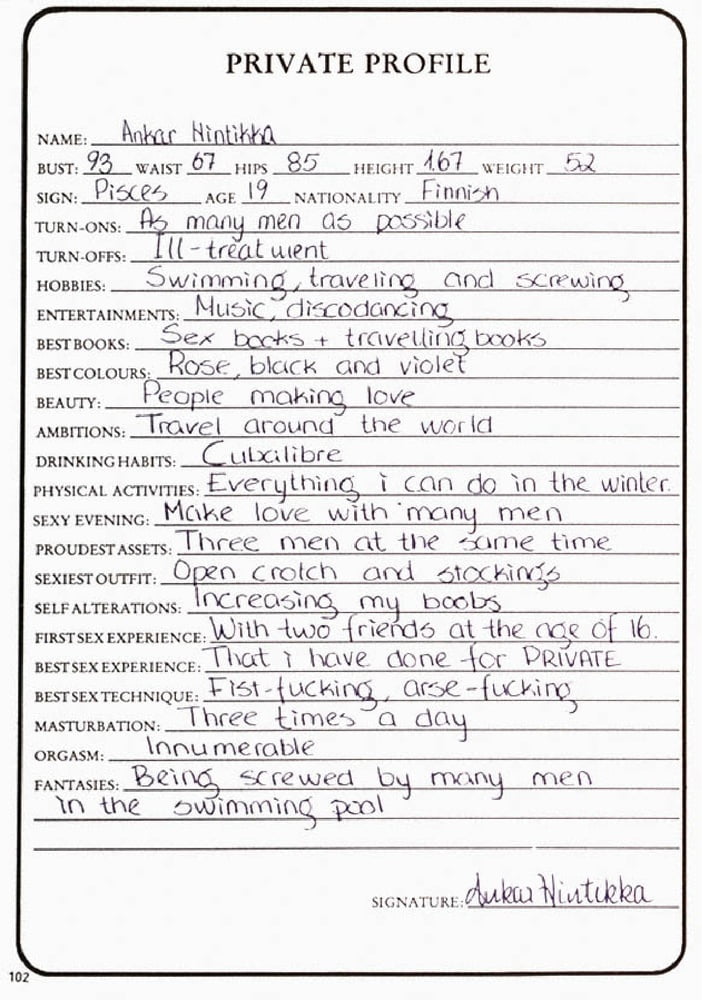 PRIVATE PROFILE
NAME: Ankar Hintikka
BUST: 93 WAIST 67 HIPS 85 HEIGHT 1.67 WEIGHT 52
SIGN: Pisces AGE 19 NATIONALITY Finnish
TURN-ONS: As many men as possible
TURN-OFFS: Ill-treatment
HOBBIES: Swimming, traveling and screwing
ENTERTAINMENTS: Music, discodancing
BEST BOOKS: Sex books + travelling books
BEST COLOURS: Rose, black and violet
BEAUTY: People making love
AMBITIONS: Travel around the world
DRINKING HABITS: Cubalibre
PHYSICAL ACTIVITIES: Everything i can do in the winter.
SEXY EVENING: Make love with many men
PROUDEST ASSETS: Three men at the same time
SEXIEST OUTFIT: Open crotch and stockings
SELF ALTERATIONS: Increasing my boobs
BEST SEX EXPERIENCE: That i have done for PRIVATE
BEST SEX TECHNIQUE: Fist-fucking, arse-fucking
MASTURBATION: Three times a day
ORGASM: Innumerable
FANTASIES: Being screwed by many men
in the swimming pool
SIGNATURE: Ankar Hintikka
102